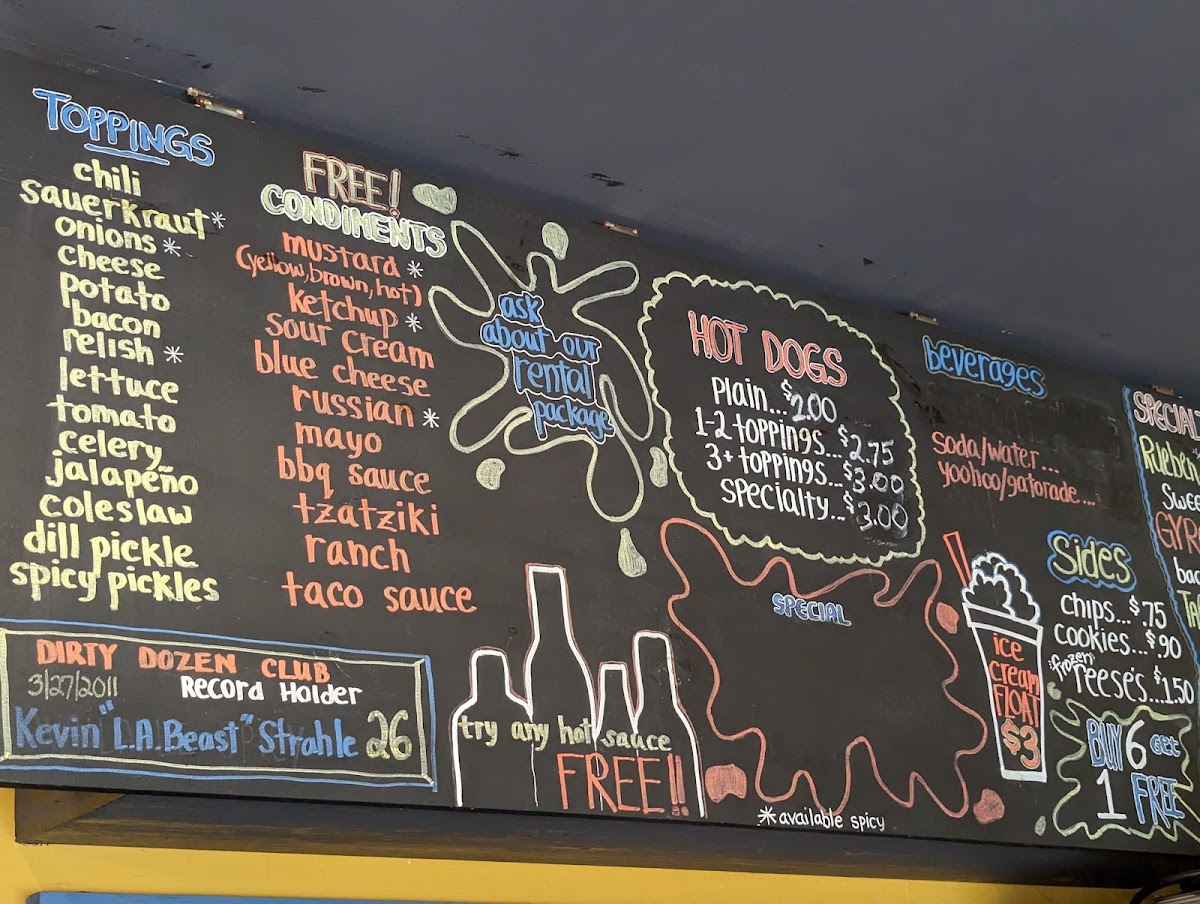 TOPPINGS
chili
sauerkraut*
onions*
cheese
potato
bacon
relish*
lettuce
tomato
celery
jalapeño
coleslaw
dill pickle
spicy pickles
FREE!
CONDIMENTS
mustard*
(yellow, brown, hot)
ketchup*
sour cream
blue cheese
russian*
mayo
bbq sauce
tzatziki
ranch
taco sauce
ask
about our
rental
package
HOT DOGS
Plain... $2.00
1-2 toppings... $2.75
3+ toppings... $3.00
specialty... $3.00
beverages
soda/water...
yoohoo/gatorade...
Sides
chips... $.75
cookies... $.90
frozen
reese's... $1.50
BUY 6 Get
1 FREE
ice
cream
FLOAT
$3
SPECIAL
*available spicy
try any hot sauce
FREE!!
DIRTY DOZEN CLUB
3/27/2011 Record Holder
Kevin "L.A.Beast" Strahle 26